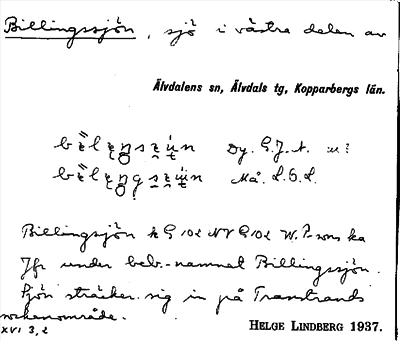 Billingssjön, sjö i västra delen av
Älvdalens sn, Älvdals tg, Kopparbergs län.
Dy. G.J.A. m?
Må. L.G.L.
Billingsjön k G 102 NV G 102 W.
Jfr under beb.-namnet Billingssjön.
Sjön sträcker sig in på Transtrands
sockenområde.
XVI 3,2
HELGE LINDBERG 1937.